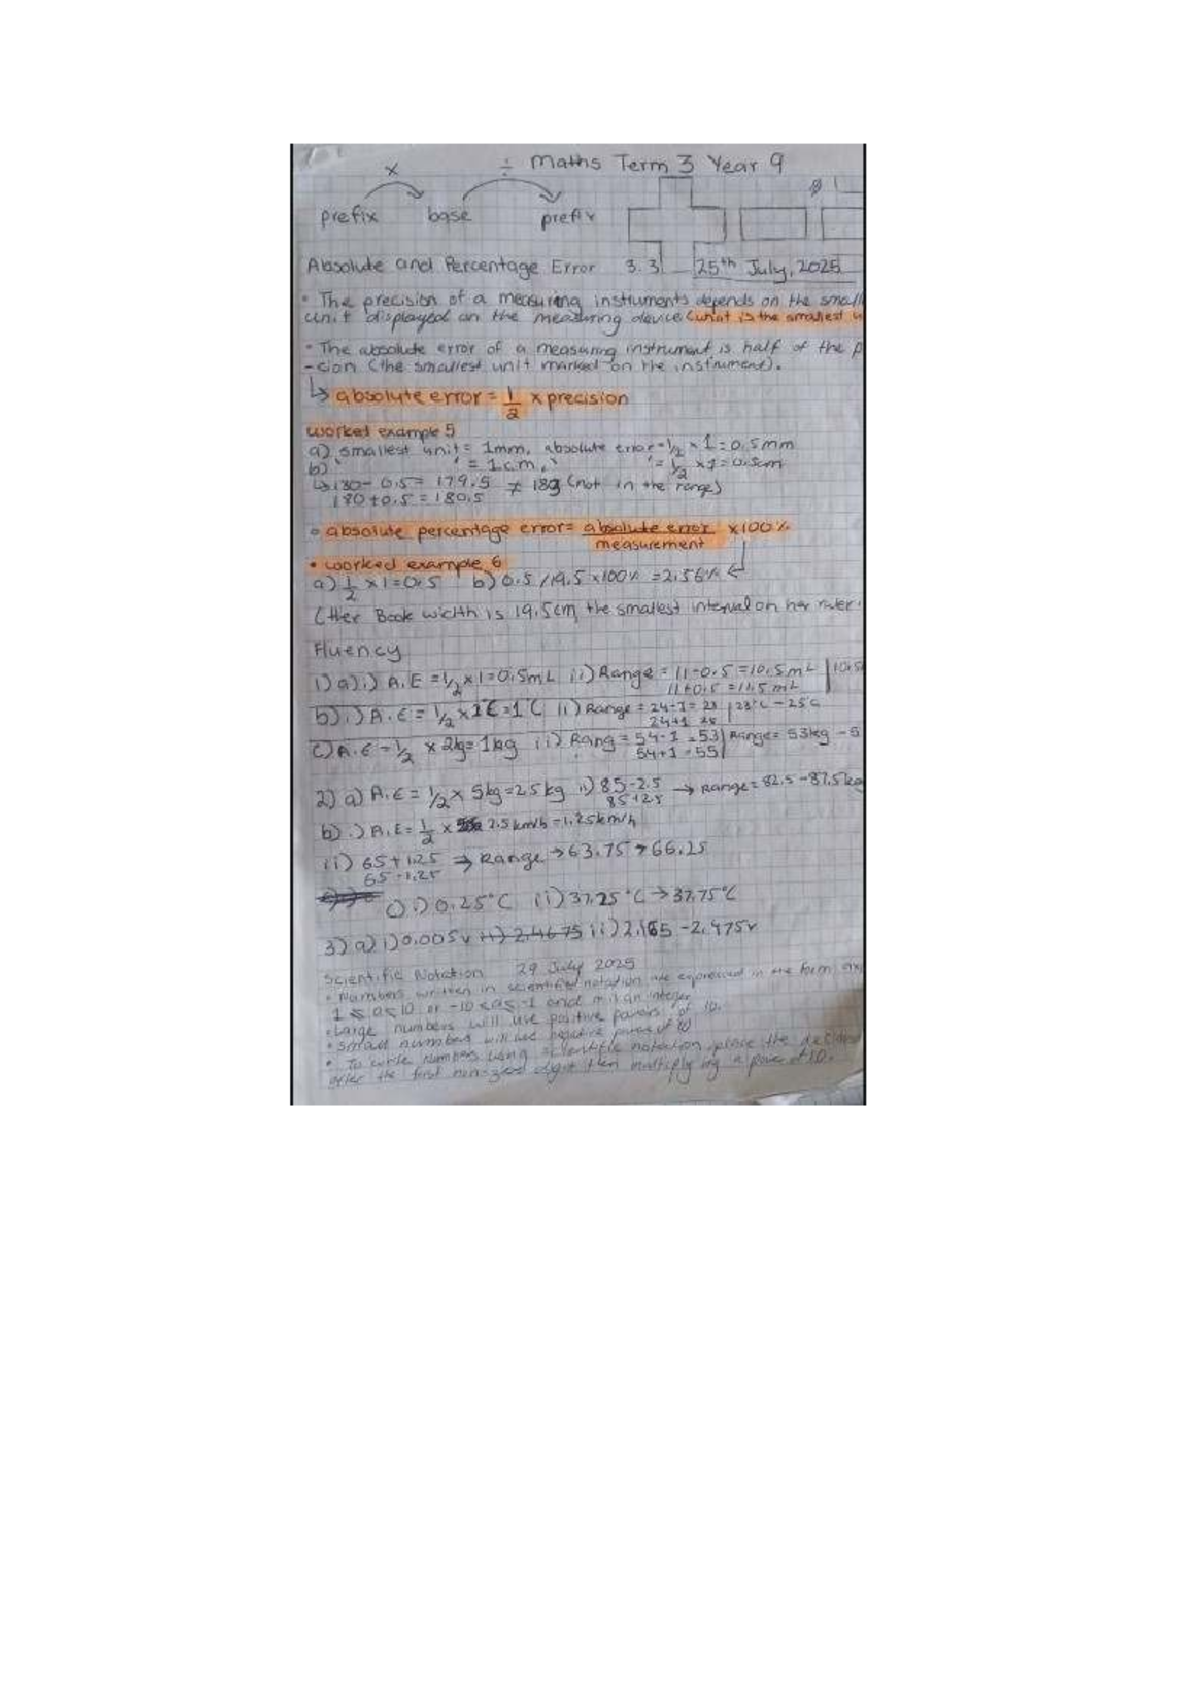 Maths Term 3 Year 9
× ÷
prefix base prefix
Absolute and Percentage Error 3.3 25th July, 2025
• The precision of a measuring instruments depends on the small
unit displayed on the measuring device (unit is the smallest
- The absolute error of a measuring instrument is half of the p
-cion (the smallest unit marked on the instrument).
↳ absolute error = 1/2 × precision
worked example 5
a) smallest unit = 1mm, absolute error = 1/2 × 1 = 0.5mm
b) ' ' = 1cm, ' ' = 1/2 × 1 = 0.5cm
180 - 0.5 = 179.5 ≠ 183 (not in the range)
180 + 0.5 = 180.5
• absolute percentage error = absolute error / measurement ×100%
• worked example 6
a) 1/2 × 1 = 0.5 b) 0.5 / 19.5 × 100% = 2.56%
(Her Book width is 19.5cm, the smallest interval on her ruler
Fluency
1) a) i) A.E = 1/2 × 1 = 0.5mL ii) Range = 11 - 0.5 = 10.5mL | 10.5
11 + 0.5 = 11.5mL
b) i) A.E = 1/2 × = 1°C ii) Range = 24 - 1 = 23 | 23°C - 25°C
24+1 25
c) A.E = 1/2 × 2kg = 1kg ii) Rang = 54 - 1 = 53 | Range = 53kg - 5
54+1 = 55
2) a) A.E = 1/2 × 5kg = 2.5kg ii) 85 - 2.5 → Range = 82.5 - 87.5kg
85 + 2.5
b) i) A.E = 1/2 × 2.5km/h = 1.25km/h
ii) 65 + 1.25 → Range → 63.75 → 66.25
65 - 1.25
c) i) 0.25°C ii) 37.25°C → 37.75°C
3) a) i) 0.005v ii) 2.4675 ii) 2.465 - 2.475v
Scientific Notation 29 July 2025
• Numbers written in scientific notation are expressed in the form
1 ≤ a < 10 or -10 < a ≤ -1 and m is an integer
• Large numbers will use positive powers of 10.
• small numbers will use negative powers of 10
• To write numbers using scientific notation place the decimal
after the first non-zero digit then multiply by a power of 10.